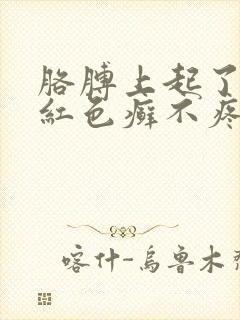 胳膊上起了
紅色癣不疼
喀什-烏魯木齊